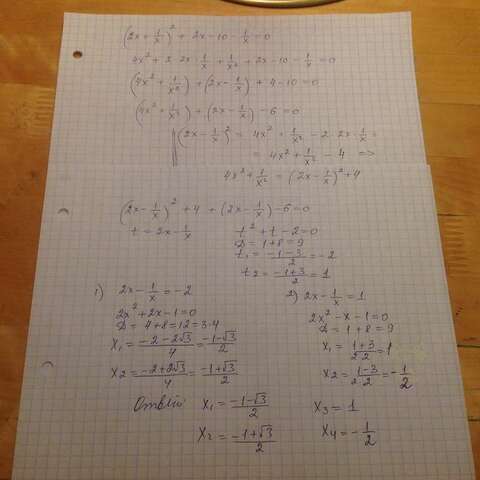 (2x + 1/x)² + 2x - 10 - 1/x = 0
4x² + 2·2x·1/x + 1/x² + 2x - 10 - 1/x = 0
(4x² + 1/x²) + (2x - 1/x) + 4 - 10 = 0
(4x² + 1/x²) + (2x - 1/x) - 6 = 0
(2x - 1/x)² = 4x² + 1/x² - 2·2x·1/x =
= 4x² + 1/x² - 4 =>
4x² + 1/x² = (2x - 1/x)² + 4
(2x - 1/x)² + 4 + (2x - 1/x) - 6 = 0
t = 2x - 1/x
t² + t - 2 = 0
D = 1 + 8 = 9
t₁ = (-1-3)/2 = -2
t₂ = (-1+3)/2 = 1
1) 2x - 1/x = -2
2x² + 2x - 1 = 0
D = 4 + 8 = 12 = 3·4
x₁ = (-2-2√3)/4 = (-1-√3)/2
x₂ = (-2+2√3)/4 = (-1+√3)/2
2) 2x - 1/x = 1
2x² - x - 1 = 0
D = 1 + 8 = 9
x₁ = (1+3)/(2·2) = 1
x₂ = (1-3)/(2·2) = -1/2
Ответ x₁ = (-1-√3)/2 x₃ = 1
x₂ = (-1+√3)/2 x₄ = -1/2